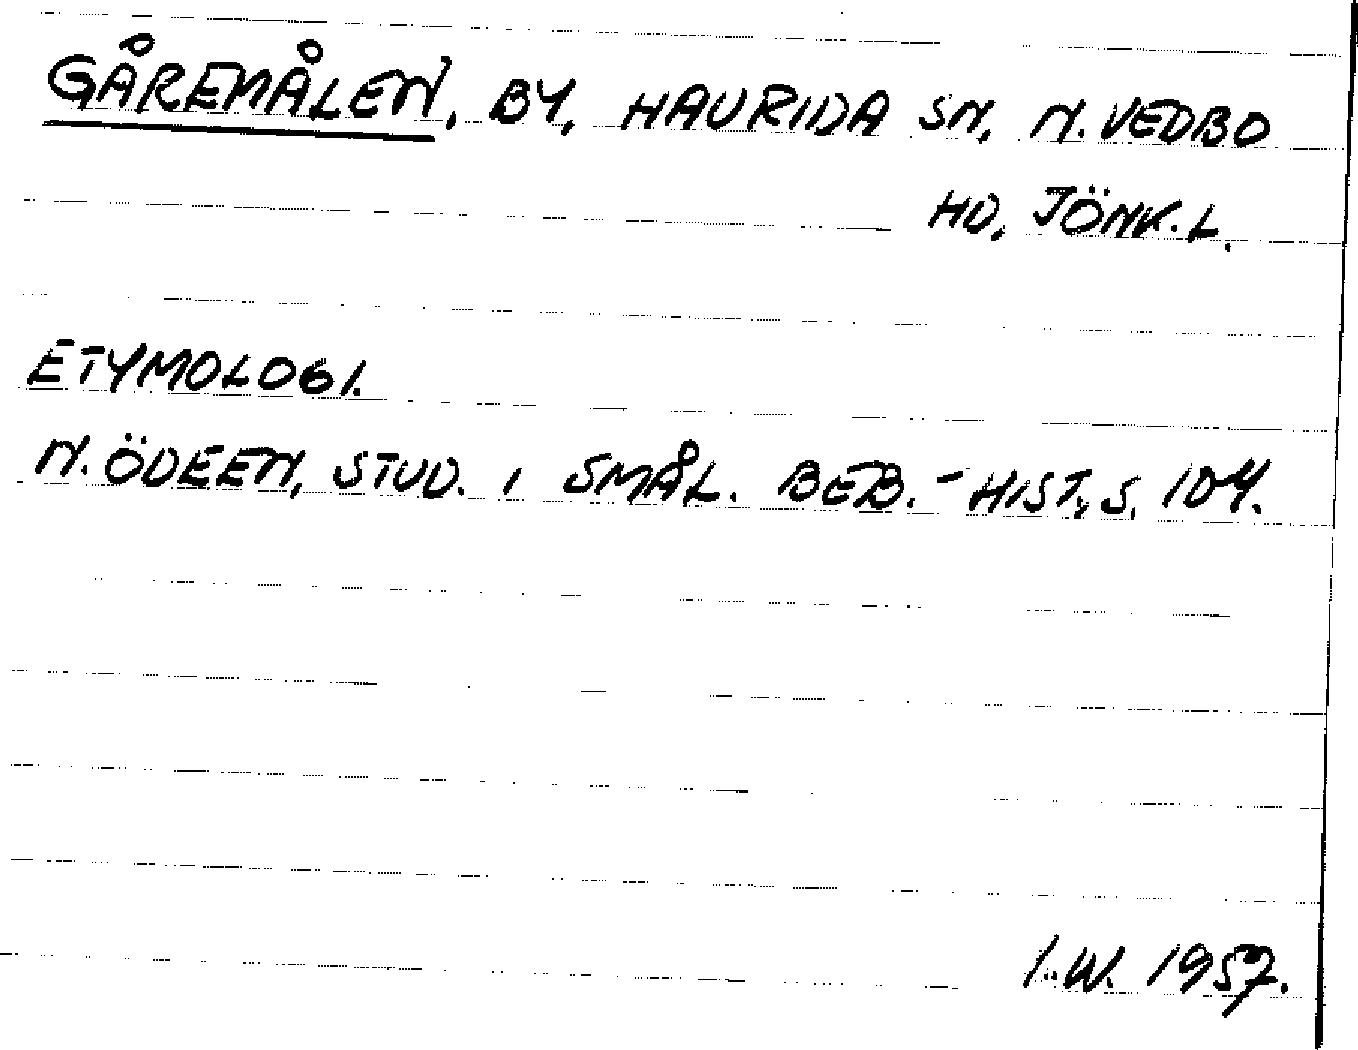 GÅREMÅLEN, BY, HAURIDA SN, N. VEDBO
HD, JÖNK.L.
ETYMOLOGI.
N. ÖDEEN, STUD. I SMÅL. BEB.-HIST, S. 104.
I.W. 1957.